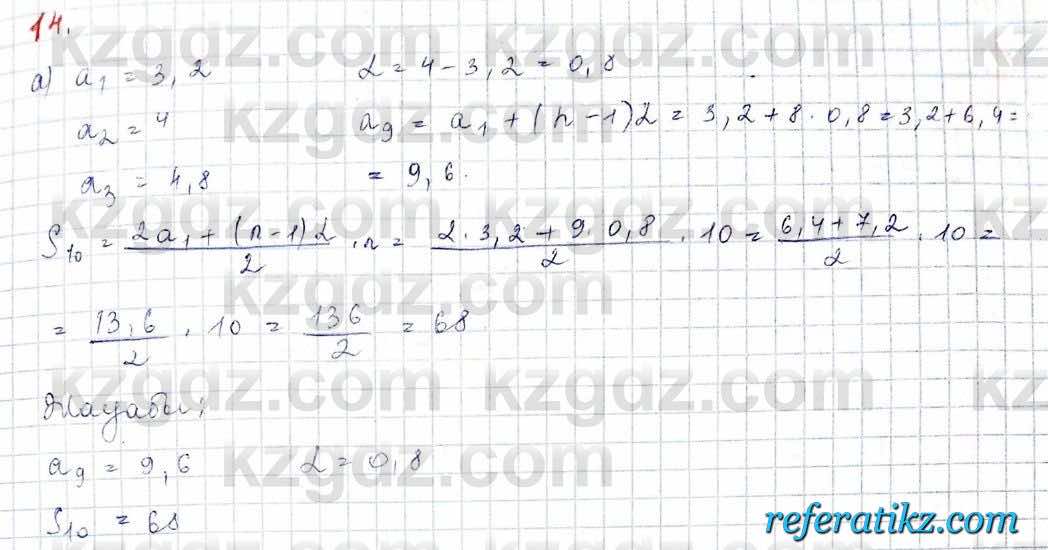 14.
а) a₁ = 3,2    d = 4 - 3,2 = 0,8
a₂ = 4    a₉ = a₁ + (n-1)d = 3,2 + 8 · 0,8 = 3,2 + 6,4 =
a₃ = 4,8    = 9,6.
S₁₀ = (2a₁ + (n-1)d)/2 · n = (2 · 3,2 + 9 · 0,8)/2 · 10 = (6,4 + 7,2)/2 · 10 =
= 13,6/2 · 10 = 136/2 = 68
Жауабы:
a₉ = 9,6    d = 0,8
S₁₀ = 68
kzgdz.com
referatikz.com